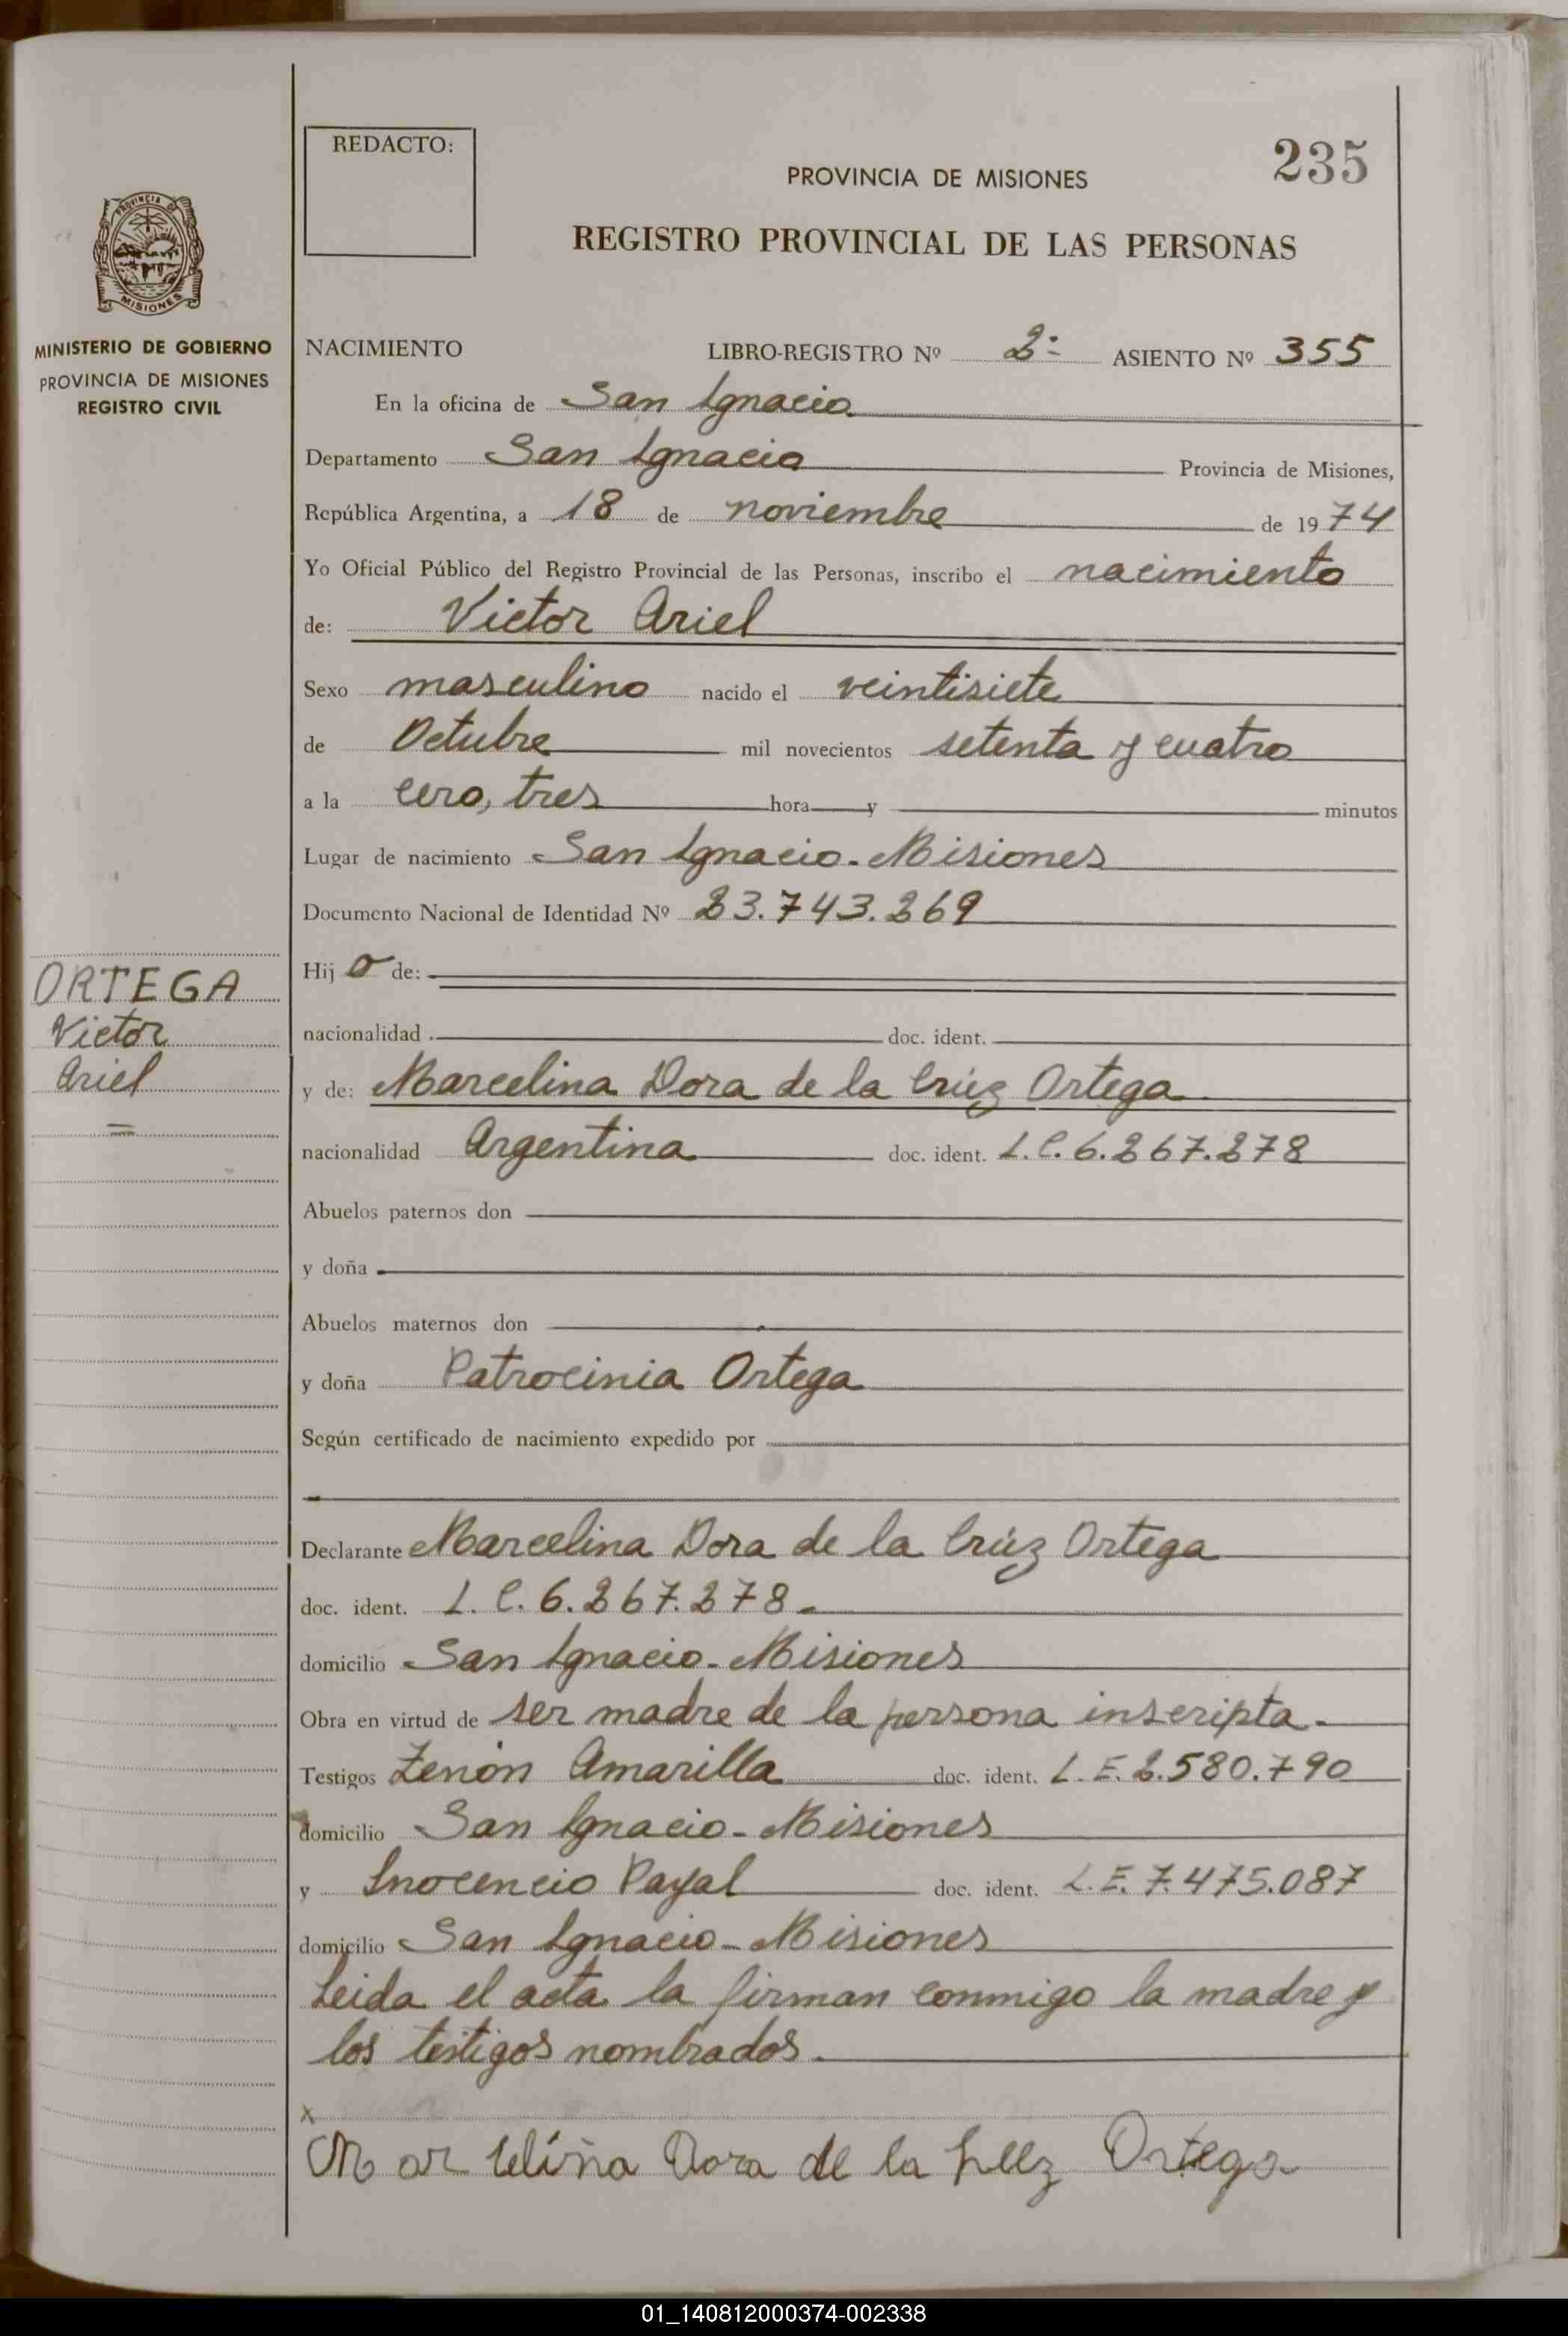 REDACTO:
235
PROVINCIA DE MISIONES
REGISTRO PROVINCIAL DE LAS PERSONAS
PROVINCIA DE
MISIONES
MINISTERIO DE GOBIERNO
PROVINCIA DE MISIONES
REGISTRO CIVIL
NACIMIENTO LIBRO-REGISTRO Nº 2º ASIENTO Nº 355
En la oficina de San Ignacio
Departamento San Ignacio Provincia de Misiones,
República Argentina, a 18 de noviembre de 1974
Yo Oficial Público del Registro Provincial de las Personas, inscribo el nacimiento
de: Victor Ariel
Sexo masculino nacido el veintisiete
de Octubre mil novecientos setenta y cuatro
a la cero, tres hora y minutos
Lugar de nacimiento San Ignacio - Misiones
Documento Nacional de Identidad Nº 23.743.269
Hijo de:
nacionalidad doc. ident.
ORTEGA
Victor
Ariel
y de: Marcelina Dora de la Crúz Ortega
nacionalidad Argentina doc. ident. L.C. 6.267.278
Abuelos paternos don
y doña
Abuelos maternos don
y doña Patrocinia Ortega
Según certificado de nacimiento expedido por
Declarante Marcelina Dora de la Crúz Ortega
doc. ident. L.C. 6.267.278.-
domicilio San Ignacio - Misiones
Obra en virtud de ser madre de la persona inscripta.-
Testigos Zenón Amarilla doc. ident. L.E. 2.580.790
domicilio San Ignacio - Misiones
y Inocencio Payal doc. ident. L.E. 7.475.087
domicilio San Ignacio - Misiones
Leida el acta la firman conmigo la madre y
los testigos nombrados.-
x
Marcelina Dora de la Cruz Ortega
01_140812000374-002338